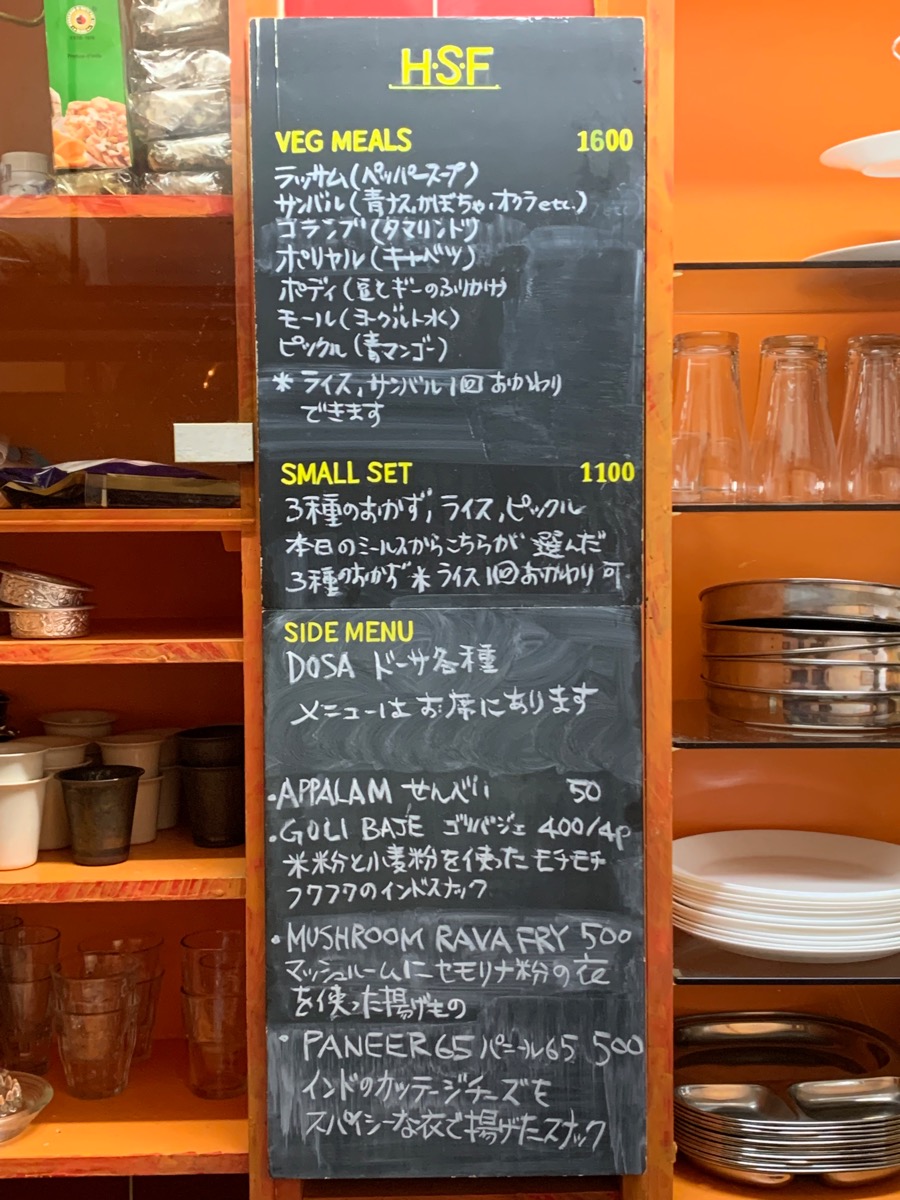 H·S·F
VEG MEALS 1600
ラッサム(ペッパースープ)
サンバル(青ナス,かぼちゃ,オクラetc.)
ゴランブ(タマリンド)
ポリヤル(キャベツ)
ポディ(豆とギーのふりかけ)
モール(ヨーグルト水)
ピックル(青マンゴー)
* ライス,サンバル1回おかわり
できます
SMALL SET 1100
3種のおかず,ライス,ピックル
本日のミールスからこちらが選んだ
3種のおかず*ライス1回おかわり可
SIDE MENU
DOSA ドーサ各種
メニューはお席にあります
・APPALAM せんべい 50
・GOLI BAJE ゴリバジェ 400/4P
米粉と小麦粉を使ったモチモチ
フワフワのインドスナック
・MUSHROOM RAVA FRY 500
マッシュルームにセモリナ粉の衣
を使った揚げもの
・PANEER65 パニール65 500
インドのカッテージチーズを
スパイシーな衣で揚げたスナック